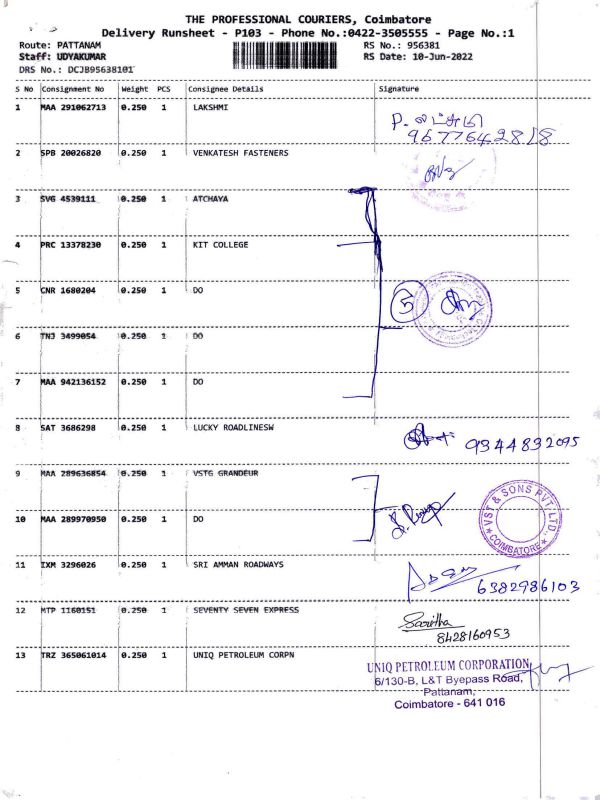 THE PROFESSIONAL COURIERS, Coimbatore
Delivery Runsheet - P103 - Phone No.:0422-3505555 - Page No.:1
Route: PATTANAM RS No.: 956381
Staff: UDYAKUMAR RS Date: 10-Jun-2022
DRS No.: DCJB95638101
S No Consignment No Weight PCS Consignee Details Signature
1 MAA 291062713 0.250 1 LAKSHMI
P. லட்சுமி
9677642818
2 SPB 20026820 0.250 1 VENKATESH FASTENERS
3 SVG 4539111 0.250 1 ATCHAYA
4 PRC 13378230 0.250 1 KIT COLLEGE
5 CNR 1680204 0.250 1 DO 5
6 TNJ 3499054 0.250 1 DO
7 MAA 942136152 0.250 1 DO
8 SAT 3686298 0.250 1 LUCKY ROADLINESW 9344832095
9 MAA 289636854 0.250 1 VSTG GRANDEUR
10 MAA 289970950 0.250 1 DO
VST & SONS PVT LTD
★ COIMBATORE ★
11 IXM 3296026 0.250 1 SRI AMMAN ROADWAYS 6382986103
12 MTP 1160151 0.250 1 SEVENTY SEVEN EXPRESS Saritha
8428160953
13 TRZ 365061014 0.250 1 UNIQ PETROLEUM CORPN
UNIQ PETROLEUM CORPORATION
6/130-B, L&T Byepass Road,
Pattanam,
Coimbatore - 641 016